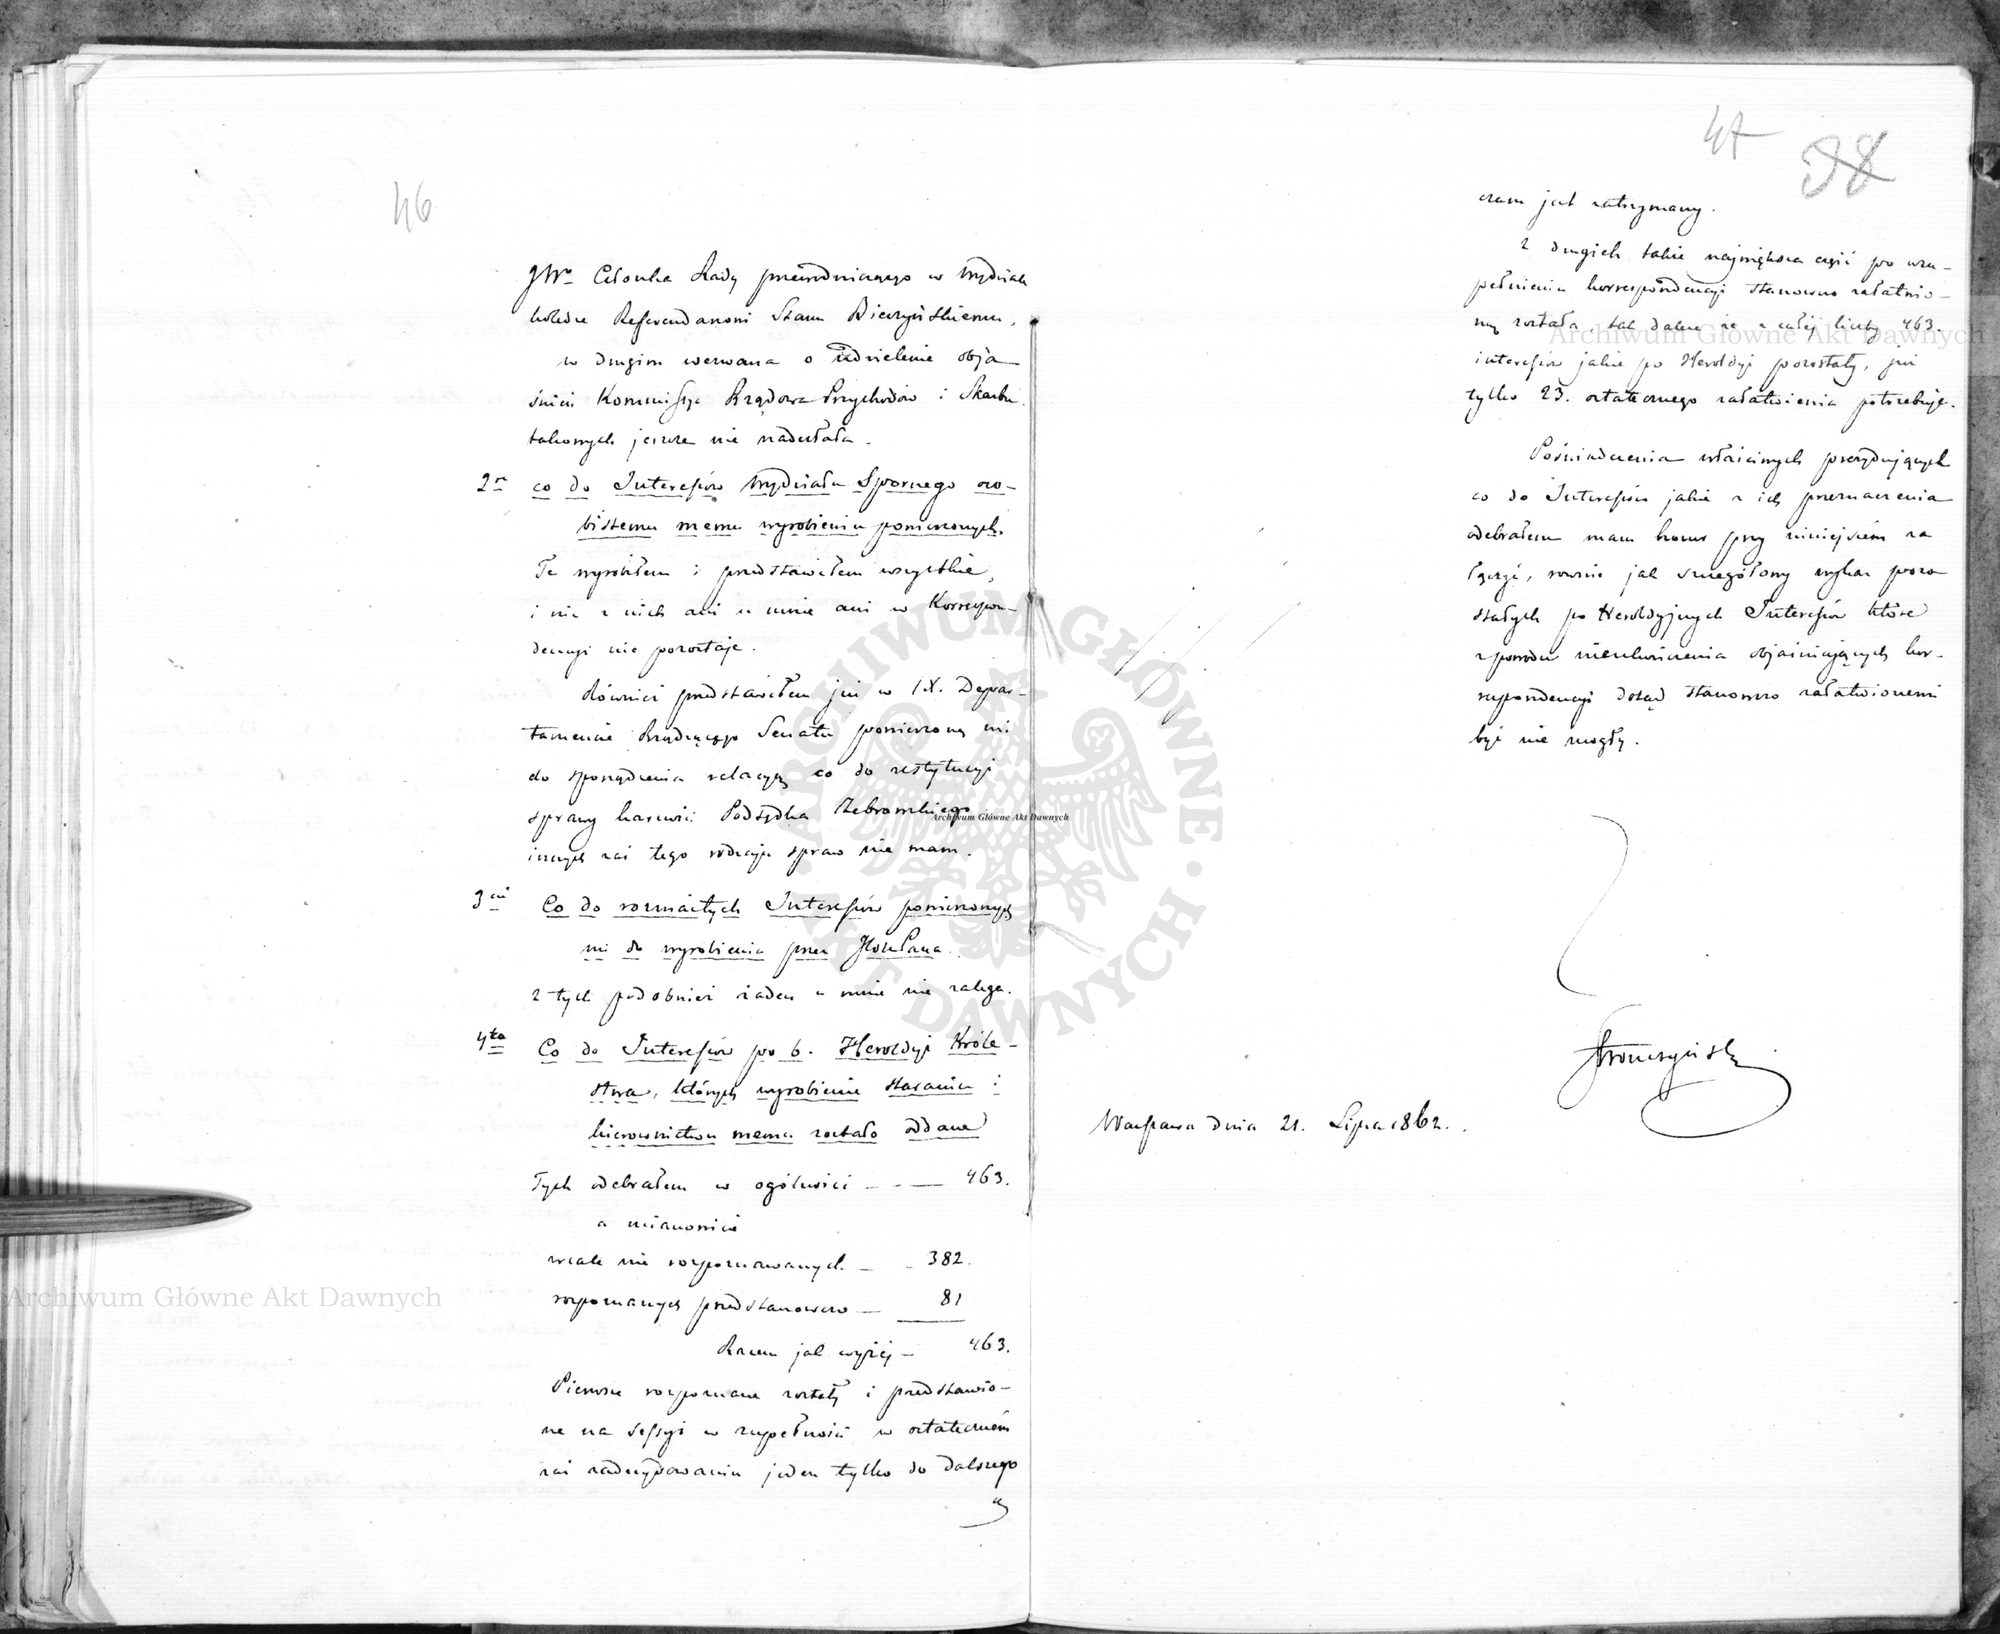 46
JWo Członka Rady prezydniącego w Wydziale
koledze Referendarzowi Stanu Bieczyńskiemu,
w drugim wezwana o udzielenie obja
śnień Kommissya Rządowa Przychodów i Skarbu
takowych jeszcze nie nadesłała.
2re co do Interessów Wydziału Spornego oso-
bistemu memu wyrobieniu poruczonych.
Te wyrobiłem i przedstawiłem wszystkie,
i nic z nich ani u mnie ani w Korrespon-
dencyi nie pozostaje.
Również przedstawiłem już w IX. Depar-
tamencie Rządzącego Senatu poruczoną mi
do sporządzenia relacyę co do restytucyi
sprawy karnéj Podsędka Żebrowskiego
innych zaś tego rodzaju spraw nie mam.
3cie Co do rozmaitych Interessów poruczonych
mi do wyrobienia przez JWW Pana.
z tych podobnież żaden u mnie nie zalega.
4to Co do Interessów po b. Heroldyi Króle-
stwa, których wyrobienie staraniu i
kierownictwu memu zostało oddane
Tych odebrałem w ogólności - - - 463.
a mianowicie
wcale nie rozpoznawanych - - 382.
rozpoznanych przedstanowczo - 81
Razem jak wyżéj - 463.
Pierwsze rozpoznane zostały i przedstawio-
ne na sessyi w zupełności w ostateczném
zaś zadecydowaniu jeden tylko do dalszego
cz
47
38
czasu jest zatrzymany.
z drugich także największa część po uzu-
pełnieniu korrespondencyi stanowczo załatwio-
ną została, tak dalece że z całéj liczby 463.
interessów jakie po Heroldyi pozostały, już
tylko 23. ostatecznego załatwienia potrzebuje.
Poświadczenia właściwych prezydujących
co do Interessów jakie z ich przeznaczenia
odebrałem mam honor przy niniejszém za
łączyć, równie jak szczegółowy wykaz pozo
stałych po Heroldyjnych Interessów które
z powodu nieukończenia objaśniających kor-
respondencyi dotąd stanowczo załatwionemi
być nie mogły.
Stronczyński
Warszawa dnia 21. Lipca 1862.
Archiwum Główne Akt Dawnych
Archiwum Główne Akt Dawnych
Archiwum Główne Akt Dawnych
ARCHIWUM GŁÓWNE AKT DAWNYCH